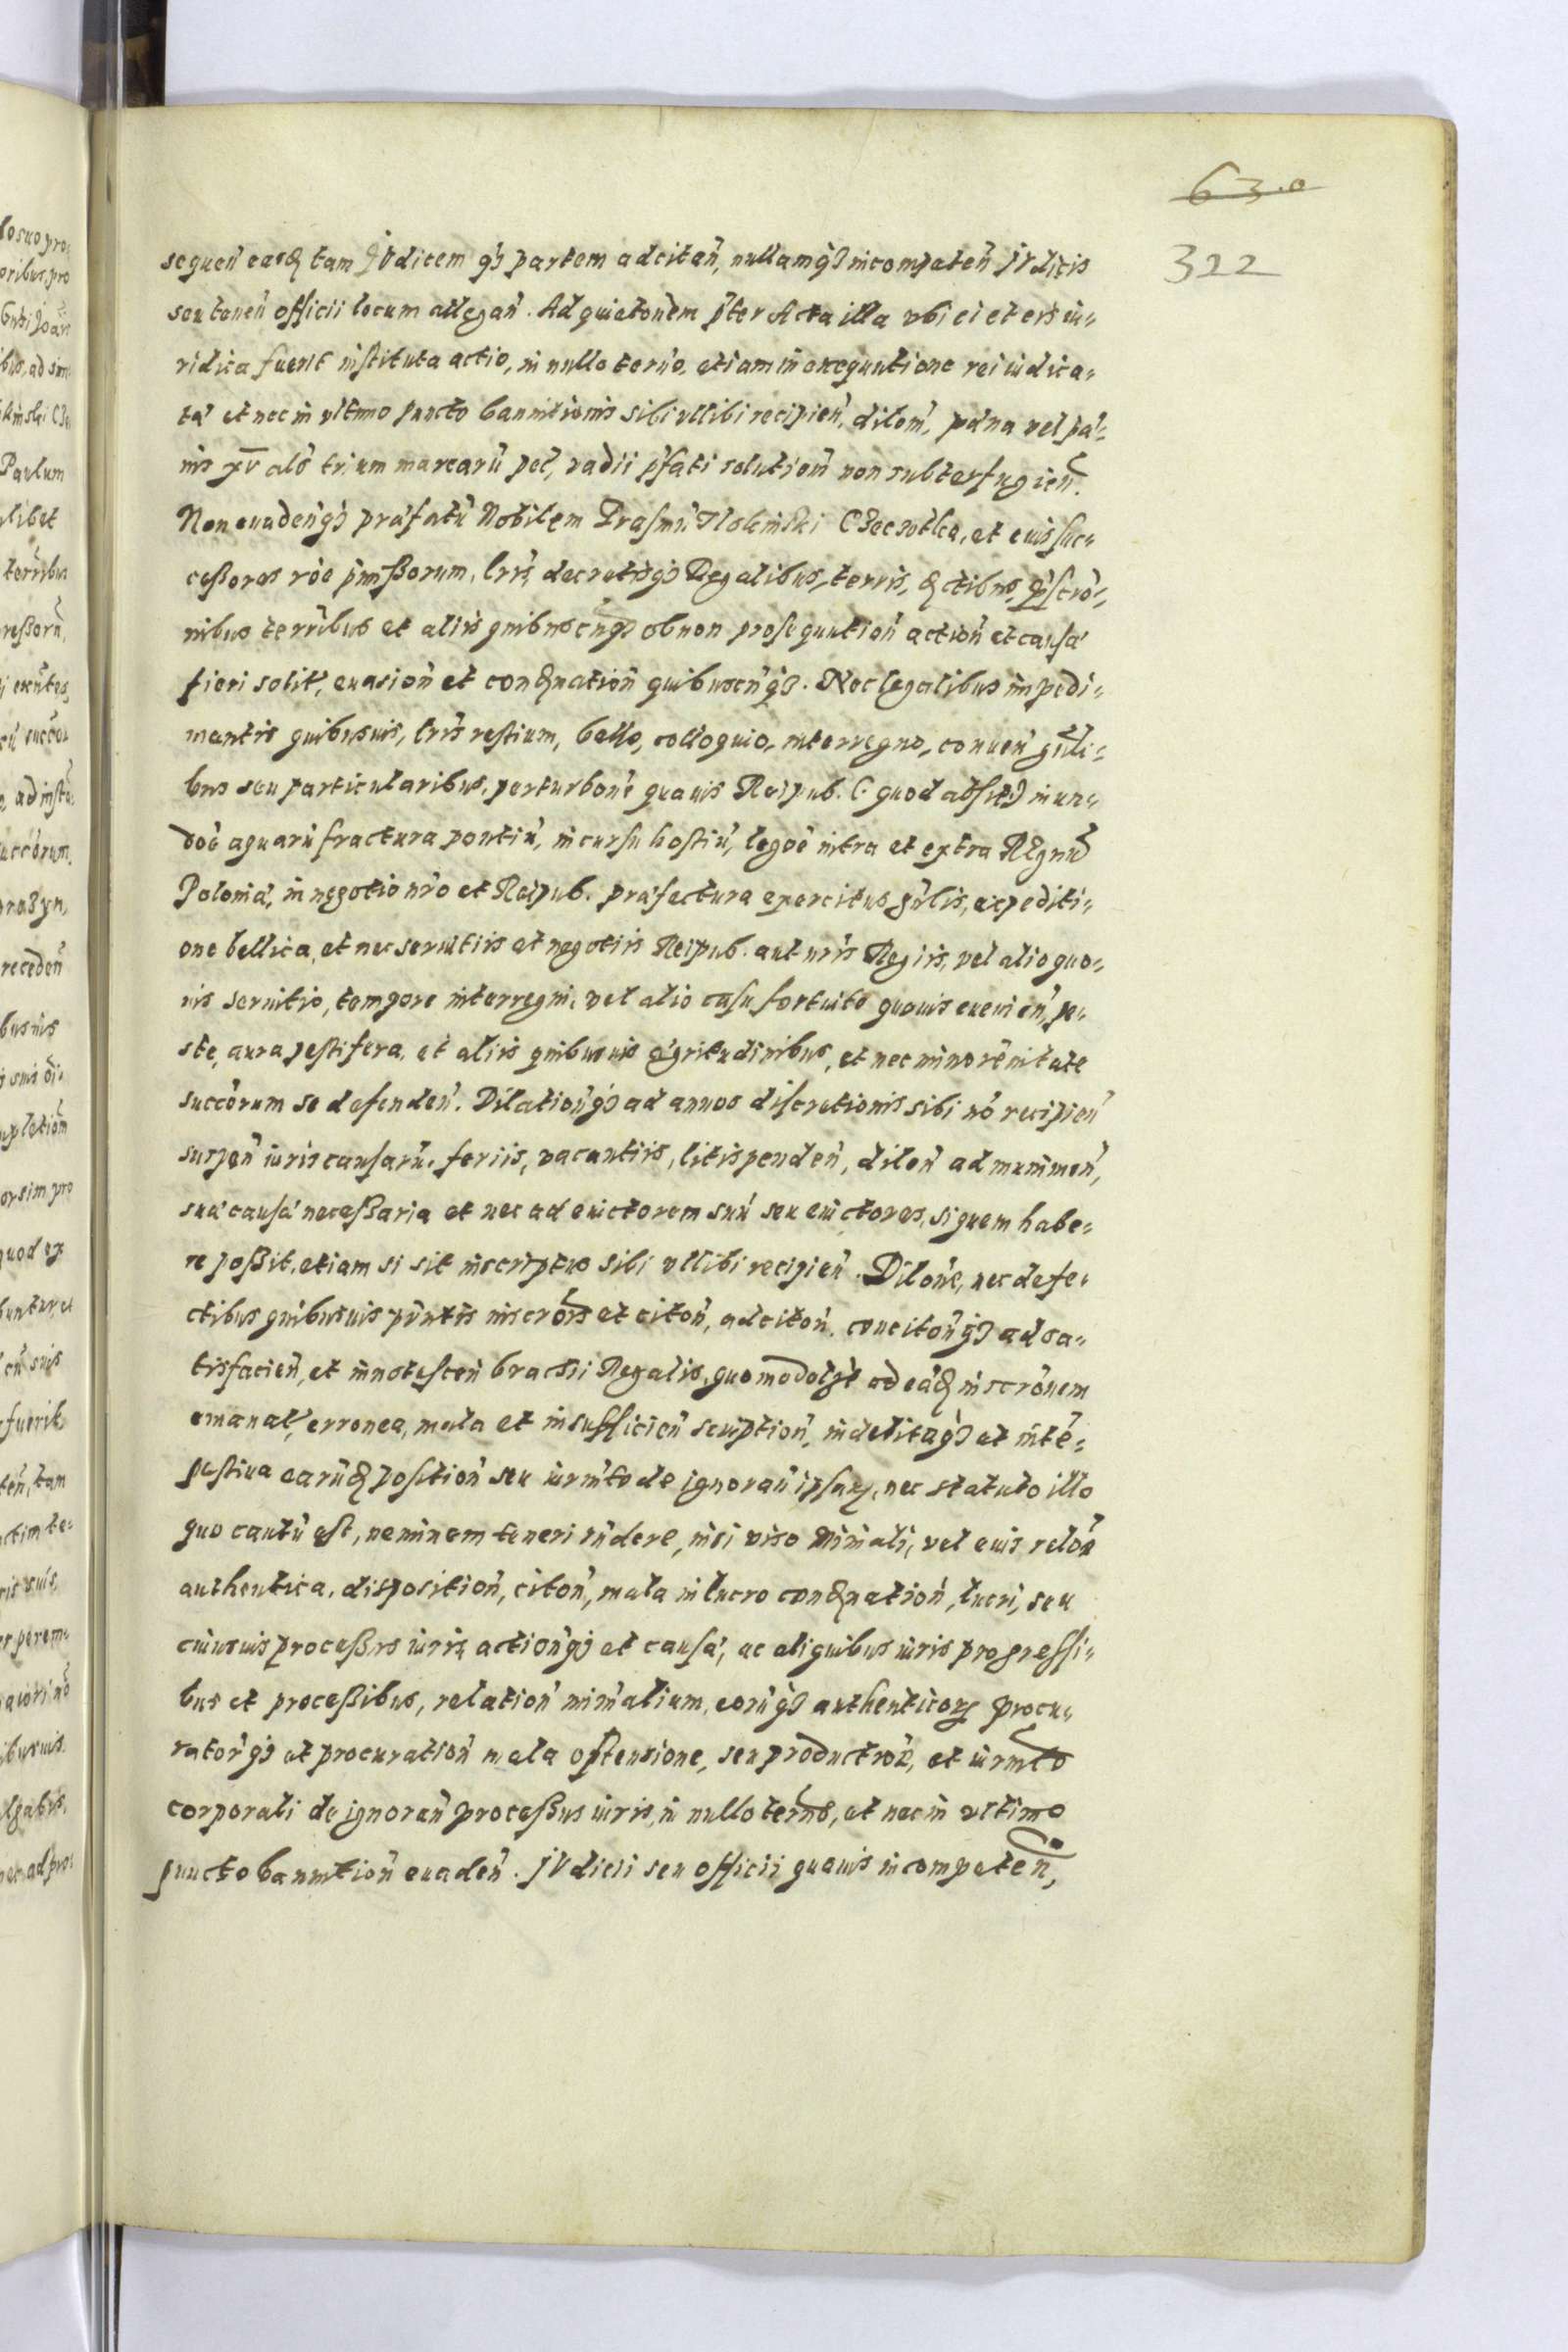 630
322
sequeñ easq̃ tam JVdicem q̃ȝ partem adcitañ, nullamq̃ȝ incompeteñ jVdicis
seu teneñ officii locum allegañ. Ad quietoñem p̃ter Acta illa vbi ei et eis iu-
ridica fuerit instituta actio, in nullo term̃o, etiam in exequutione rei iudica-
tæ et nec in vltimo puncto bannitionis sibi vllibi recipieñ, dilom̃, pæna vel pæ-
nis xv als̃ trium marcarũ pec̃, vadii p̃fati solutioñ non subterfugieñ.
Non euadeñq̃ȝ præfatũ Nobilem Erasmũ Ilolinski Czecȝotka, et euis suc-
cessores rõe p̃missorum, lr̃is decretisq̃ȝ Regalibus, terris, ctibus, p̃scrõ-
nibus terr̃ibus et aliis quibuscũq̃ȝ ob non prosequutioñ actioñ et causæ
fieri solit̃, euasioñ et condnatioñ quibuscũq̃ȝ. Nec legalibus impedi-
mentis quibusuis, lr̃is restium, bello, colloquio, interregno, conueñ gñli-
bus seu particularibus, perturboñe quauis Reipub. (quod absit) inun-
doẽ aquarũ fractura pontiũ, incursu hostiũ, legoẽ intra et extra REgnũ
Poloniæ, in negotio nr̃o et Reipub. præfectura exercitus gñlis, expediti-
one bellica, et nec seruitiis et negotiis Reipub. aut nr̃is Regiis, vel alio quo-
uis seruitio, tempore interregni, vel alio casu fortuito quouis euenieñ, pe-
ste, aura pestifera, et aliis quibusuis ægritudinibus, et nec minorẽnitate
succõrum se defendeñ. Dilatioñq̃ȝ ad annos discretionis sibi nõ recipieñ
suspeñ iuris causarũ, feriis, vacantiis, litispendeñ, diloñ ad munimeñ,
suæ causæ necessaria et nec ad euictorem suũ seu euictores, si quem habe-
re possit, etiam si sit inscriptus sibi vllibi recipieñ. Diloñe, nec defe-
ctibus quibusuis pñtis inscrõis et citoñ, adcitoñ, concitoñq̃ȝ ad sa-
tisfacieñ, et innotesceñ brachii Regalis, quomodolȝt ad eãd inscrõnem
emanat̃, erronea, mala et insufficieñ scriptioñ, indelitaq̃ȝ et intẽ-
pestiua earũd positioñ seu iurm̃to de ignorañ ipsaȝ, nec statuto illo
quo cautũ est, neminem teneri rñdere, nisi viso Miniali, vel euis relõe
authentica, dispositioñ, citoñ, mala in lucro condnatioñ, lucri, seu
cuiusuis processus iuris, actioñq̃ȝ et causæ, ac aliquibus iuris progressi-
bus et processibus, relatioñ minialium, eorũq̃ȝ authenticoȝ procu-
ratorq̃ȝ et procuratioñ mala ostensione, seu productioẽ, et iurm̃to
corporali de ignorañ processus iuris, in nullo term̃o, et nec in vltimo
puncto bannitioñ euadeñ. jVdicii seu officii quauis incompeteñ,